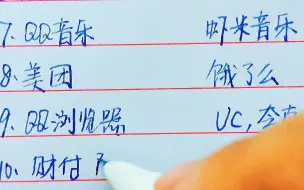 7. QQ音乐 虾米音乐
8. 美团 饿了么
9. QQ浏览器 UC, 夸克
10. 财付